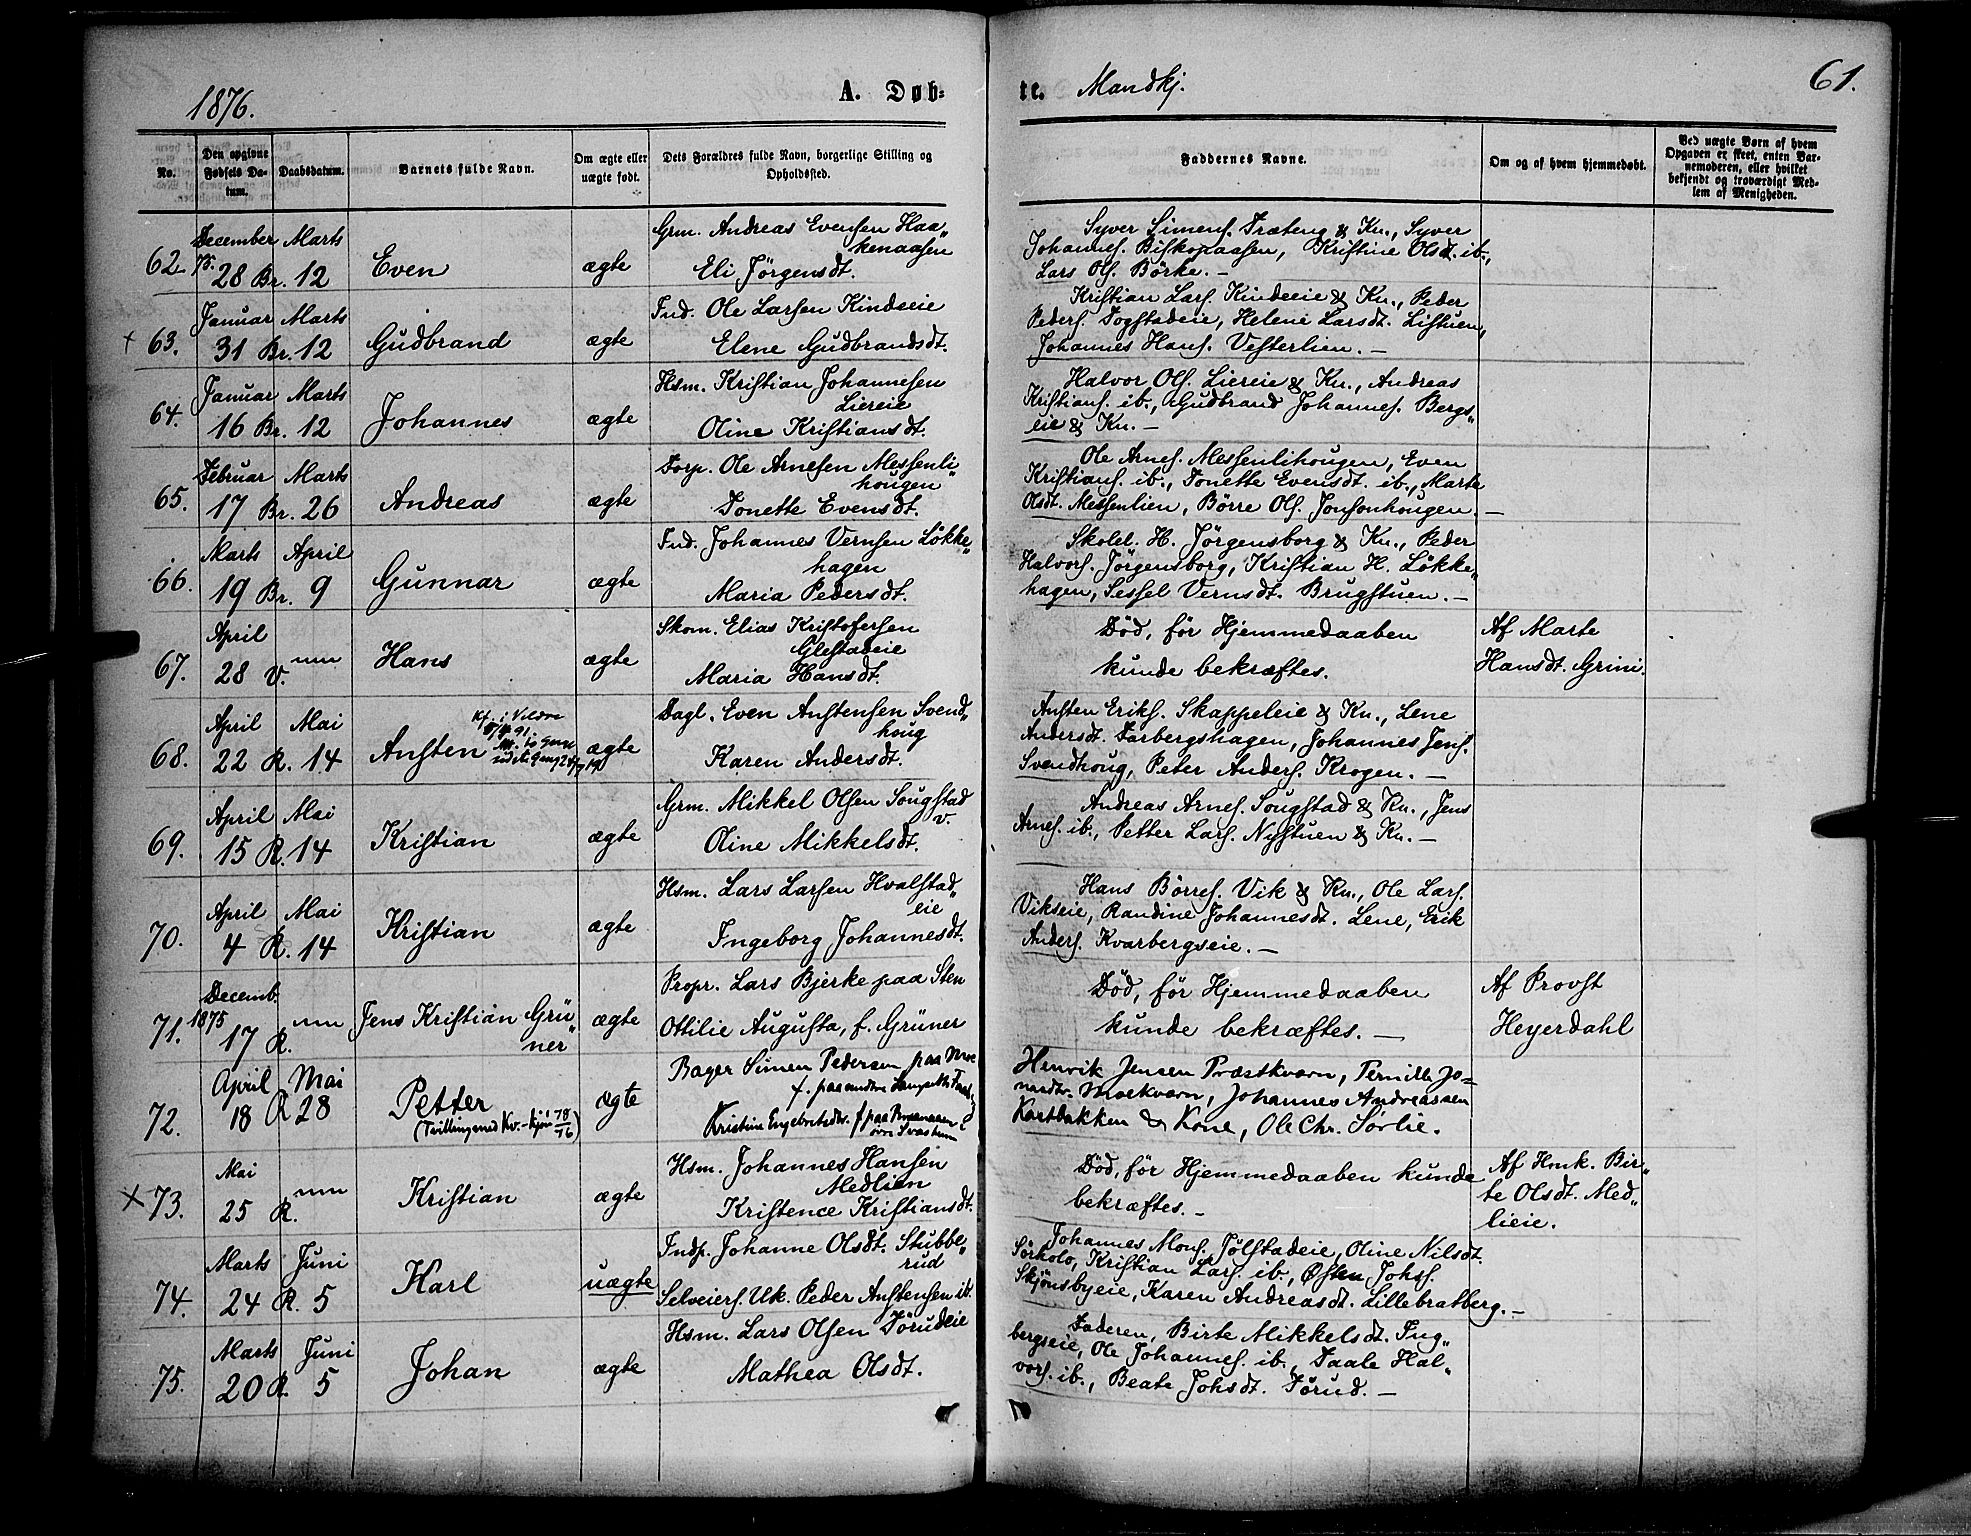 1876.
A. Døb-
te. Mandkj.
61.
No.
Den opgivne Fødsels Da-tum.
Daabsdatum.
Barnets fulde Navn.
Om ægte eller uægte født.
Dets Forældres fulde Navn, borgerlige Stilling og Opholdssted.
Faddernes Navne.
Om og af hvem hjemmedøbt.
Ved uægte Børn af hvem Opgaven er skeet, enten Bar-nemoderen, eller hvilket bekjendt og troværdigt Med-lem af Menigheden.
62. December 75. 28 Br. Marts 12 Even ægte
Grm. Andreas Evensen Haa„
kenaasen
Eli Jörgensdt.
Syver Simens. Træteng & Kn., Syver
Johannes. Biskopaasen, Kristine Olsdt. ib.,
Lars Ols. Börke. -
+ 63. Januar 31 Br. Marts 12 Gudbrand ægte
Ind. Ole Larsen Kindseie
Elene Gudbrandsdt.
Kristian Lars. Kindseie & Kn., Peder
Peders. Fogstadeie, Helene Larsdt. Listuen,
Johannes Hans. Vesterlien. -
64. Januar 16 Br. Marts 12 Johannes ægte
Hsm. Kristian Johannesen
Liereie
Oline Kristiansdt.
Halvor Ols. Liereie & Kn., Andreas
Kristians. ib., Gudbrand Johannes. Bergs„
eie & Kn. -
65. Februar 17 Br. Marts 26 Andreas ægte
Forp. Ole Arnesen Messenli„
hougen
Tonette Evensdt.
Ole Arnes. Messenlihougen, Even
Kristians. ib., Tonette Evensdt. ib., Marte
Olsdt. Messenlien, Börre Ols. Jonsonhougen. -
66. Marts 19 Br. April 9 Gunnar ægte
Ind. Johannes Vernsen Lökke„
hagen
Maria Pedersdt.
Skolel. H. Jörgensborg & Kn., Peder
Halvors. Jörgensborg, Kristian H. Lökke„
hagen, Sessel Vernsdt. Brugstuen. -
67. April 28 v. Hans ægte
Skom. Elias Kristofersen
Glestadeie
Maria Hansdt.
Död, för Hjemmedaaben
kunde bekræftes.
Af Marte
Hansdt. Grini.
68. April 22 R. Mai 14 Ansten ægte
Kf. i Veldre
Dagl. Even Anstensen Svend„
houg
Karen Andersdt.
Ansten Eriks. Skappeleie & Kn., Lene
Andersdt. Farbergshagen, Johannes Jens.
Svendhoug, Peter Anders. Krogen. -
69. April 15 R. Mai 14 Kristian ægte
Grm. Mikkel Olsen Sougstad
v.
Oline Mikkelsdt.
Andreas Arnes. Sougstad & Kn., Jens
Arnes. ib., Petter Lars. Nystuen & Kn. -
70. April 4 R. Mai 14 Kristian ægte
Hsm. Lars Larsen Hvalstad„
eie
Ingeborg Johannesdt.
Hans Börres. Vik & Kn., Ole Lars.
Vikseie, Randine Johannesdt. Lene, Erik
Anders. Kvarbergseie. -
71. Decemb. 1875 17 R. Jens Kristian Grü„
ner ægte
Propr. Lars Bjerke paa Sten
Ottilie Augusta, f. Grüner
Död, för Hjemmedaaben
kunde bekræftes. -
Af Provst
Heyerdahl
72. April 18 R Mai 28 Petter ægte
(Tvilling med Kv.-kjön 78/76)
Bager Simen Pedersen paa Moe
Kristine Engebretsdtr.
Henrik Jensen Præstkværn, Pernille Jo=
nardtr. Moekværn, Johannes Andreassen
Kartbakken & Kone, Ole Chr. Sørlie.
x 73. Mai 25 R. Kristian ægte
Hsm. Johannes Hansen
Medlien
Kristence Kristiansdt.
Död, för Hjemmedaaben kunde
bekræftes. -
Af Hmk. Bir„
te Olsdt. Med„
lieie.
74. Marts 24 R. Juni 5 Karl uægte
Indp. Johanne Olsdt. Stubbe„
rud
Selveiers. Uk. Peder Anstensen ib.
Johannes Mons. Tölstadeie, Oline Nilsdt.
Sörkolo, Kristian Lars. ib., Østen Johs.
Skjönsbyeie, Karen Andreasdt. Lillebratberg. -
75. Marts 20 R. Juni 5 Johan ægte
Hsm. Lars Olsen Törudeie
Mathea Olsdt.
Faderen, Birte Mikkelsdt. Ing„
bergseie, Ole Johannes. ib., Paale Hal„
vors. ib., Beate Johsdt. Törud. -